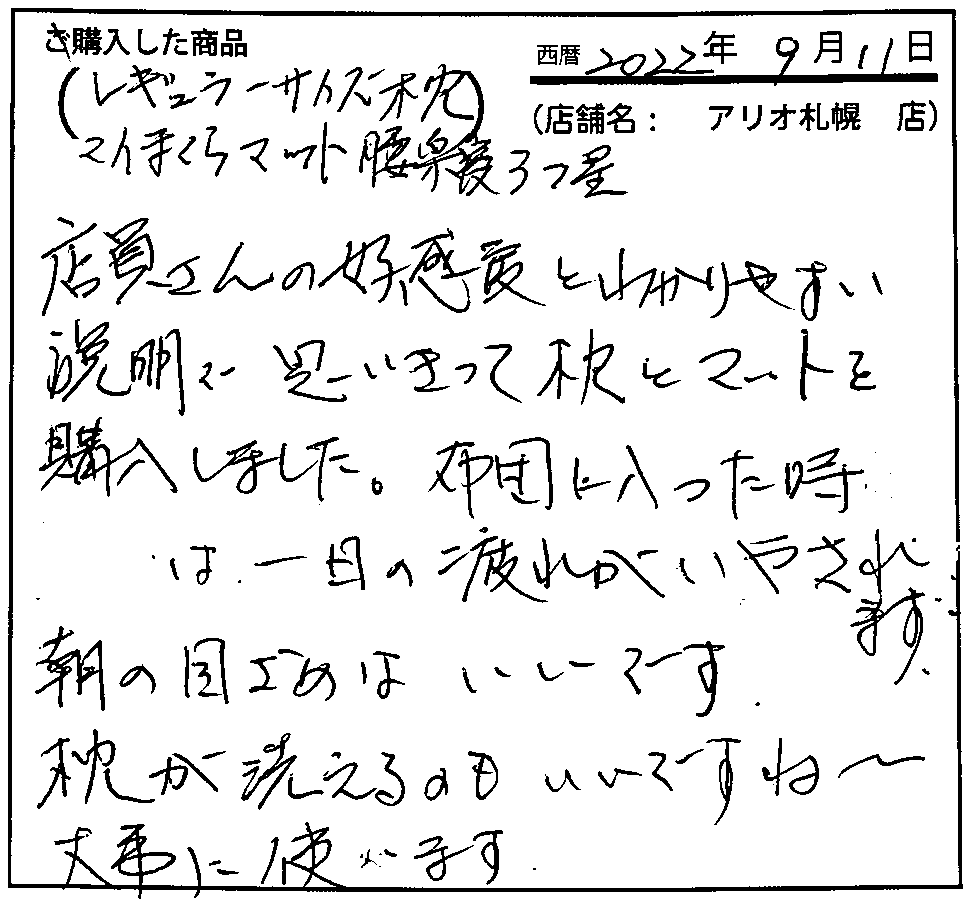 ご購入した商品
西暦 2022年 9月11日
(レギュラーサイズ枕)
(店舗名： アリオ札幌 店)
マイまくらマット腰楽寝3つ星
店員さんの好感度とわかりやすい
説明で思いきって枕とマットを
購入しました。布団に入った時
は一日の疲れがいやされ
ます。
朝の目ざめはいいです.
枕が洗えるのもいいですね〜
大事に使います.